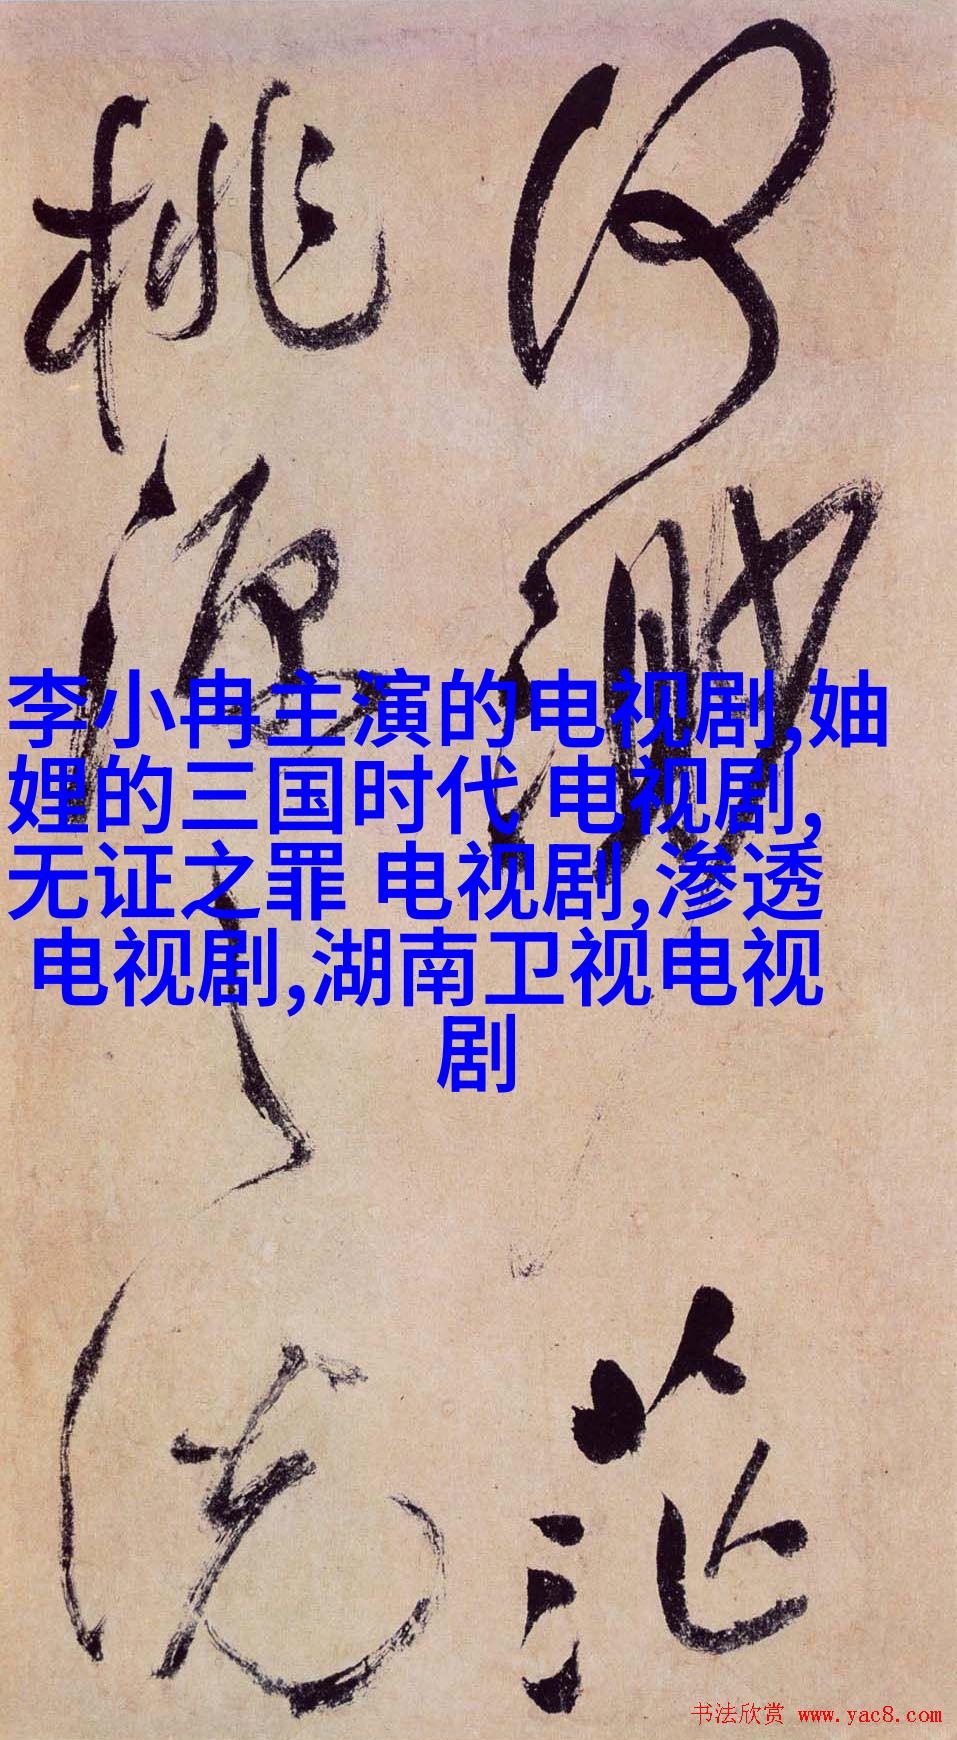 何渺茫
桃源之説
李小冉主演的电视剧,妯
娌的三国时代 电视剧,
无证之罪 电视剧,渗透
电视剧,湖南卫视电视
剧
书法欣赏 www.yac8.com